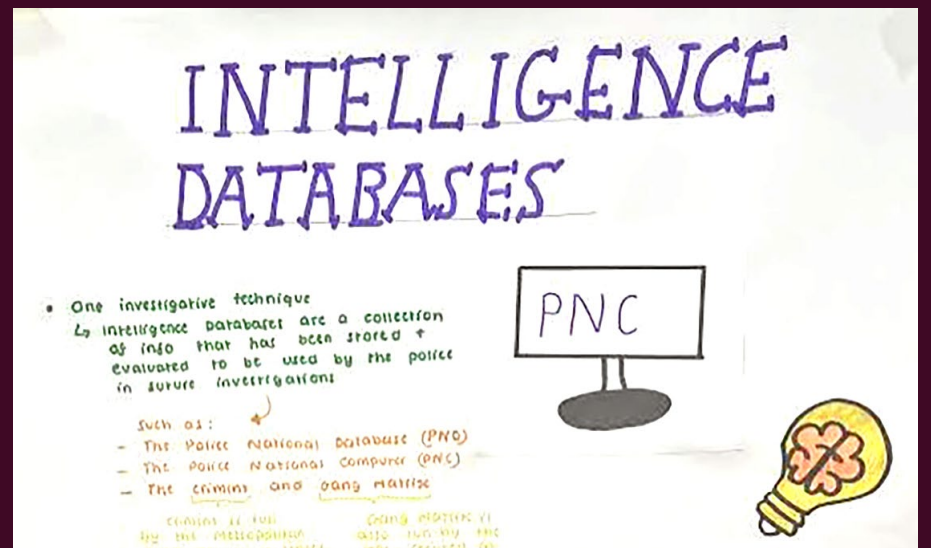 INTELLIGENCE
DATABASES
PNC
• One investigative technique
↳ intelligence databases are a collection
of info that has been stored +
evaluated to be used by the police
in future investigations
such as:
- The Police National Database (PND)
- The Police National Computer (PNC)
- The crimint and Gang Matrix
crimint is run
by the metropolitan
Gang Matrix is
also run by the